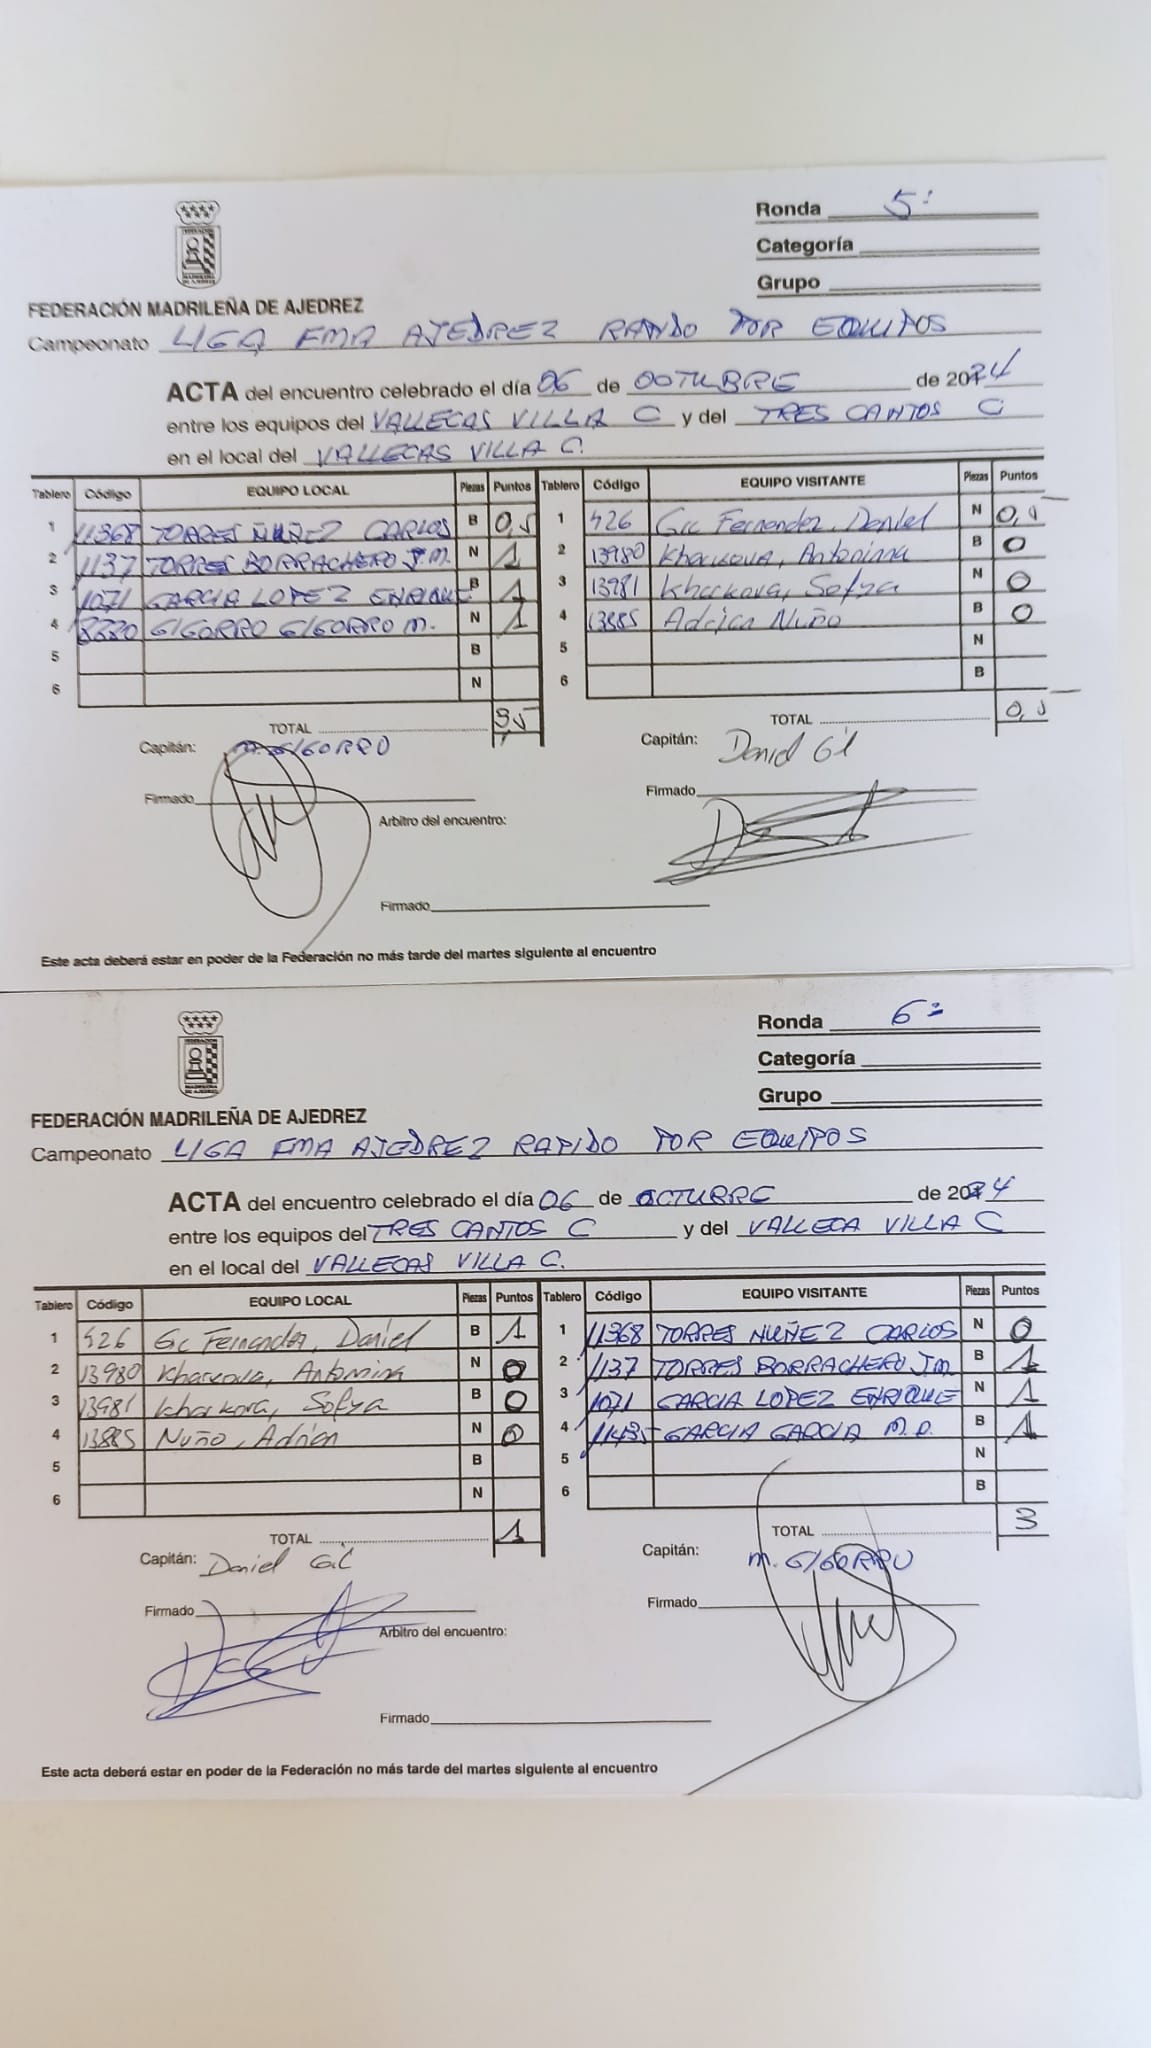 Ronda 5ª
Categoría
Grupo
FEDERACIÓN MADRILEÑA DE AJEDREZ
Campeonato LIGA FMA AJEDREZ RAPIDO POR EQUIPOS
ACTA del encuentro celebrado el día 06 de OCTUBRE de 2024
entre los equipos del VALLECAS VILLA C y del TRES CANTOS C
en el local del VALLECAS VILLA C.
Tablero Código EQUIPO LOCAL Piezas Puntos Tablero Código EQUIPO VISITANTE Piezas Puntos
1 11368 TORRES NUÑEZ CARLOS B 0,5 1 426 Gil Fernandez, Daniel N 0,5
2 1137 TORRES BORRACHERO J.M. N 1 2 13980 Kharkova, Antonina B 0
3 1071 GARCIA LOPEZ ENRIQUE B 1 3 13981 Kharkova, Sofya N 0
4 GIGORRO GIGORRO M. N 1 4 13885 Adrian Nuño B 0
5 B 5 N
6 N 6 B
TOTAL 3,5 TOTAL 0,5
Capitán: M. GIGORRO Capitán: Daniel Gil
Firmado Firmado
Arbitro del encuentro:
Firmado
Este acta deberá estar en poder de la Federación no más tarde del martes siguiente al encuentro
Ronda 6ª
Categoría
Grupo
FEDERACIÓN MADRILEÑA DE AJEDREZ
Campeonato LIGA FMA AJEDREZ RAPIDO POR EQUIPOS
ACTA del encuentro celebrado el día 06 de OCTUBRE de 2024
entre los equipos del TRES CANTOS C y del VALLECA VILLA C
en el local del VALLECAS VILLA C.
Tablero Código EQUIPO LOCAL Piezas Puntos Tablero Código EQUIPO VISITANTE Piezas Puntos
1 426 Gil Fernandez, Daniel B 1 1 11368 TORRES NUÑEZ CARLOS N 0
2 13980 Kharkova, Antonina N 0 2 1137 TORRES BORRACHERO J.M. B 1
3 13981 Kharkova, Sofya B 0 3 1071 GARCIA LOPEZ ENRIQUE N 1
4 13885 Nuño, Adrian N 0 4 11435 GARCIA GARCIA M.D. B 1
5 B 5 N
6 N 6 B
TOTAL 1 TOTAL 3
Capitán: Daniel Gil Capitán: M. GIGORRO
Firmado Firmado
Arbitro del encuentro:
Firmado
Este acta deberá estar en poder de la Federación no más tarde del martes siguiente al encuentro